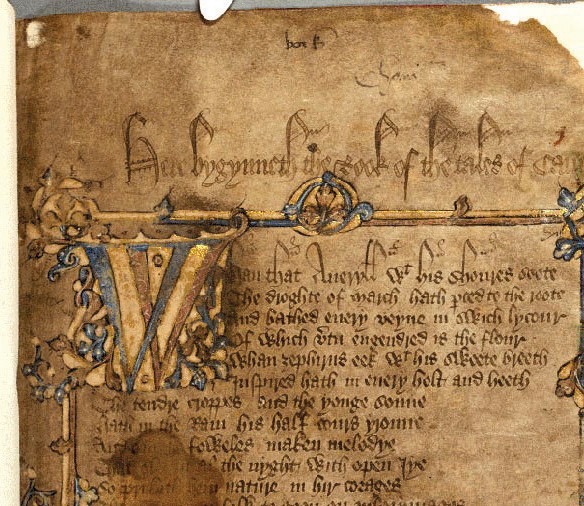 Here bygynneth the Book of the tales of Caū
Whan that Aueryłł wt his shoures soote
The droghte of March hath pced to the roote
And bathed euery veyne in swich lycour
Of which vtu engendred is the flour
Whan zephirus eek wt his swete breeth
Inspired hath in euery holt and heeth
The tendre croppes and the yonge sonne
Hath in the Ram his half cours yronne
And foweles maken melodye
al the nyght with open Iye
So priketh hem nature in hir corages
to goon on pilgrimages